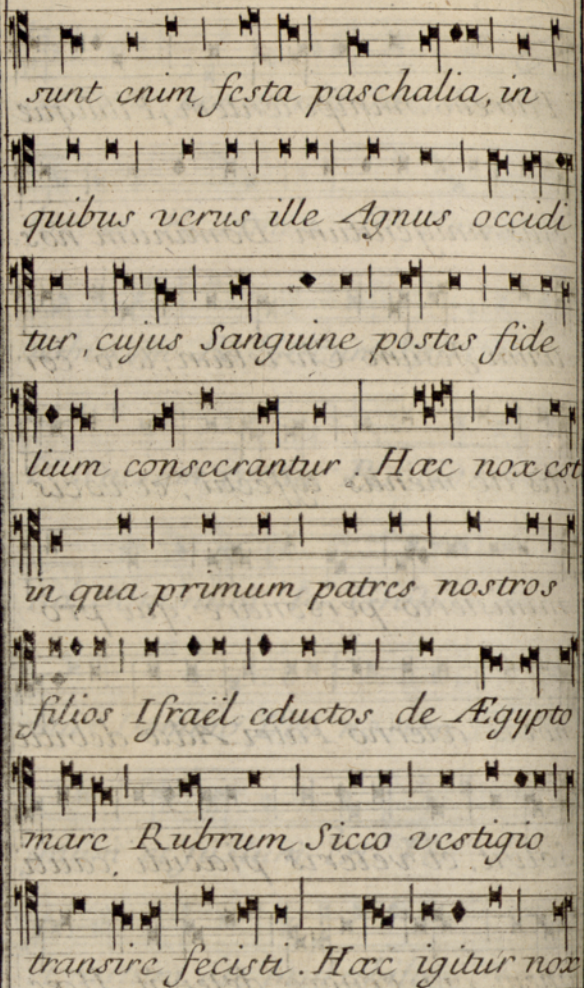 sunt enim festa paschalia, in
quibus verus ille Agnus occidi
tur, cujus Sanguine postes fide
lium consecrantur. Hæc nox est
in qua primum patres nostros
filios Israël eductos de Ægypto
mare Rubrum Sicco vestigio
transire fecisti. Hæc igitur nox